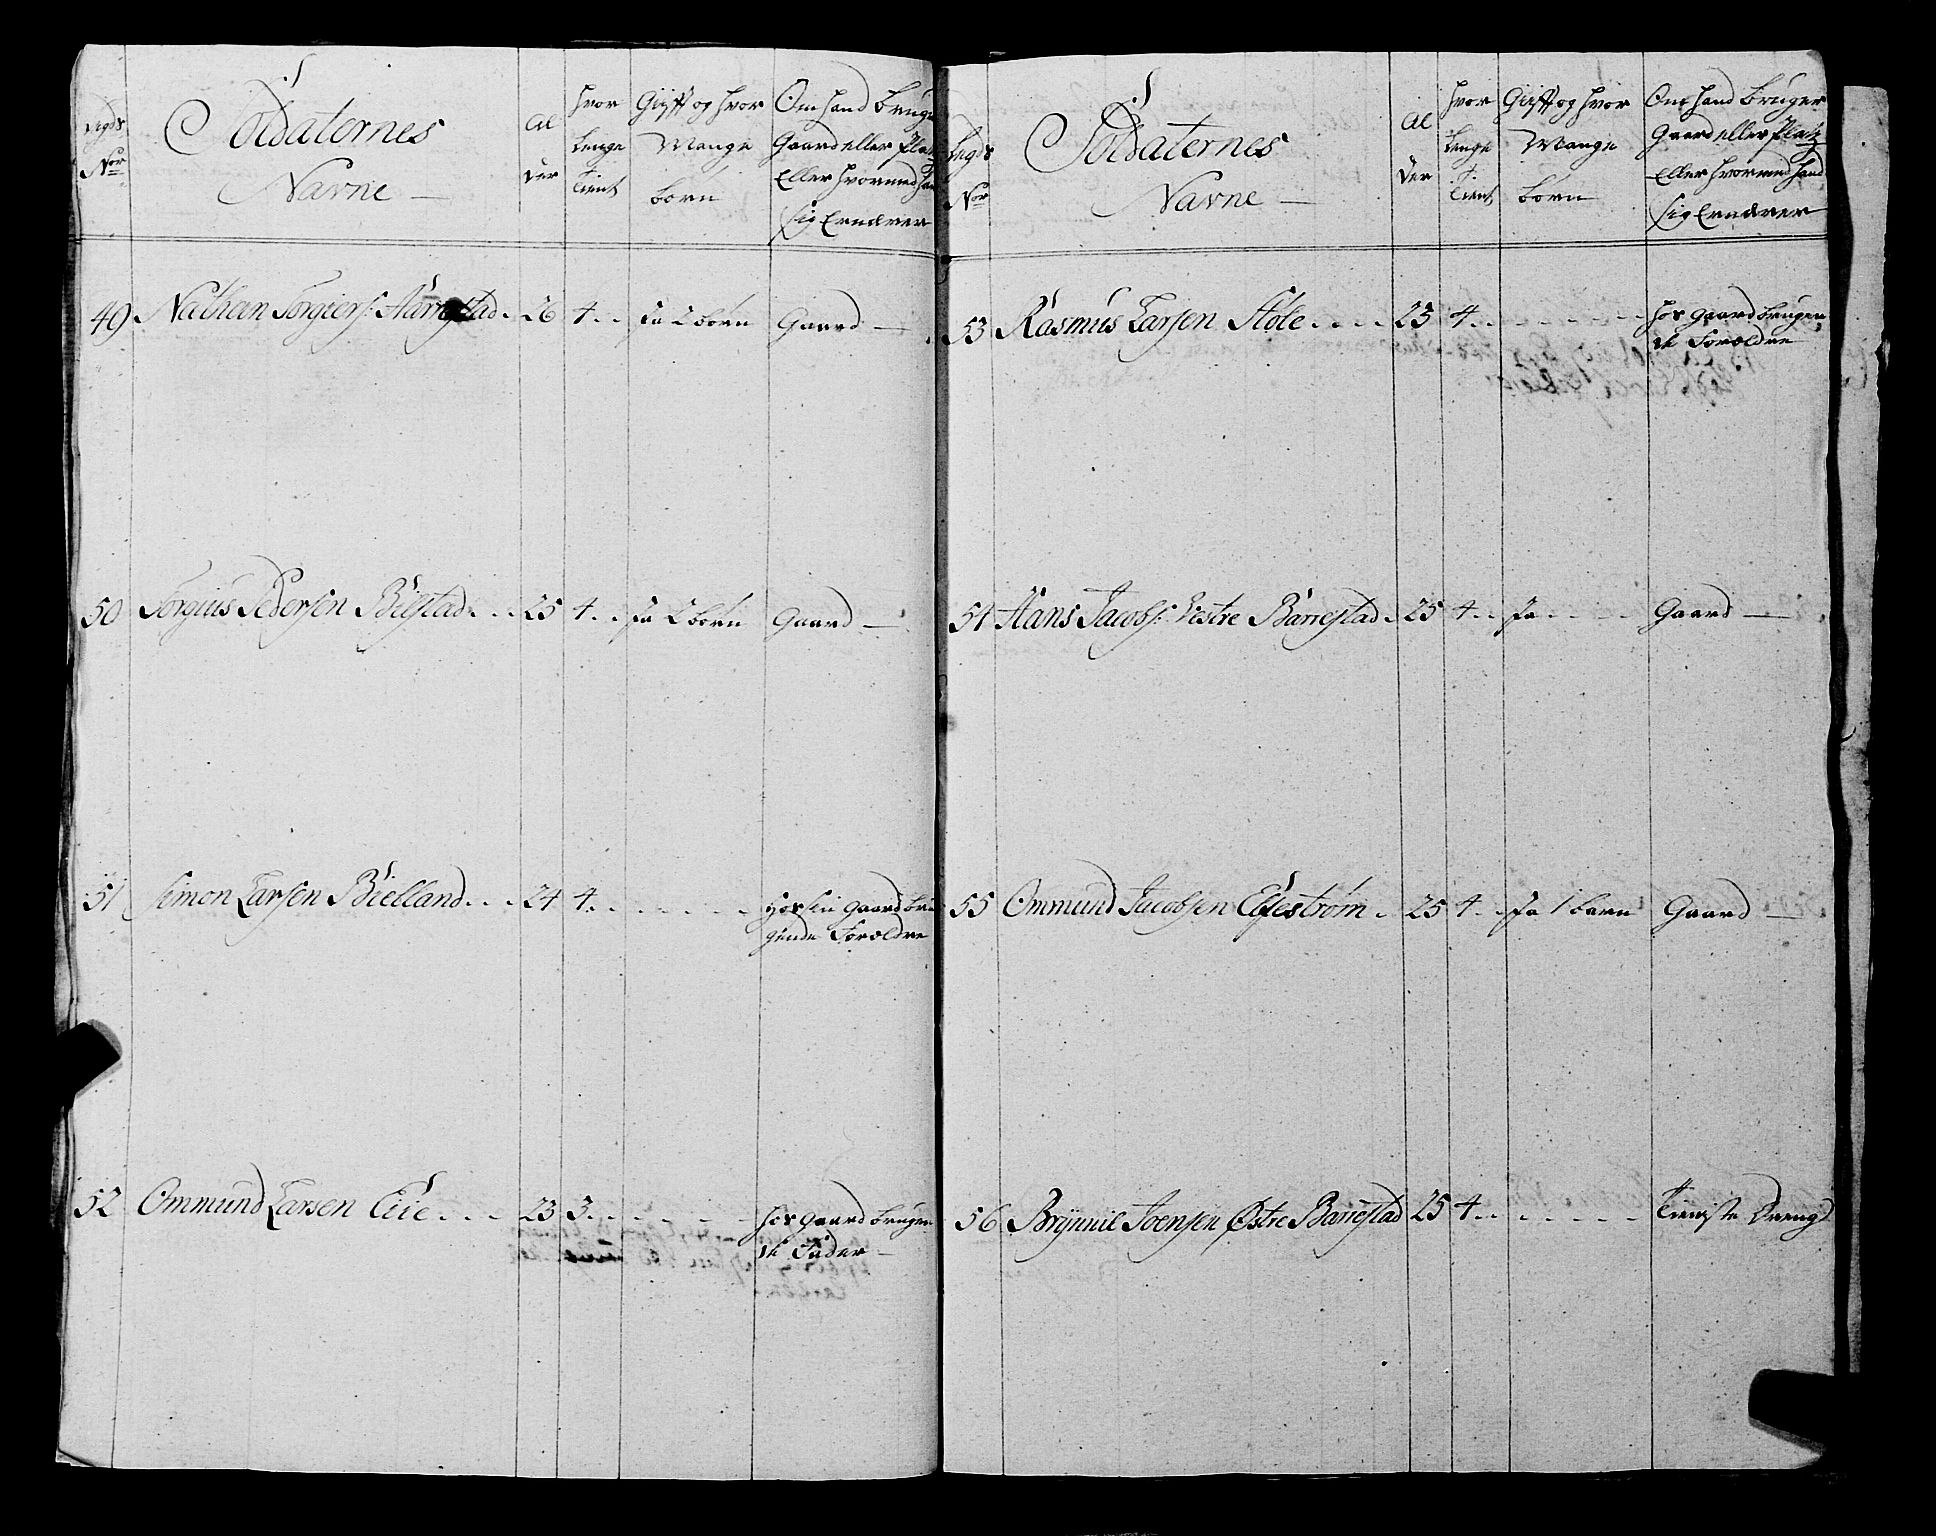 Legds Nor
Soldaternes Navne
Al der
hvor lenge tient
Gift og hvor Mange børn
Om hand bruger Gaard eller Platz Eller hvormed hand sig Ernærer
49 Nathan Torgiers: Aarrestad 26 4 Ja 2 børn Gaard
50 Torgius Pedersen Bilstad 25 4 Ja 2 børn Gaard
51 Simon Larsen Bielland 24 4 Hos sin gaard bru
gende Foroldre
52 Ommund Larsen Eiie 23 3 hos gaard brugen
de Fader
Legds Nor
Soldaternes Navne
Al der
hvor lenge tient
Gift og hvor Mange børn
Om hand bruger Gaard eller Platz Eller hvormed hand sig Ernærer
53 Rasmus Larsen Støle 25 4 hos gaard brugen
de Foroldre
54 Hans Jacobs: Vestre Barrestad 25 4 Ja Gaard
55 Ommund Jacobsen Elfestrøm 25 4 Ja 1 barn Gaard
56 Brynnil Joensen Østre Barrestad 25 4 Tieniste Dreng